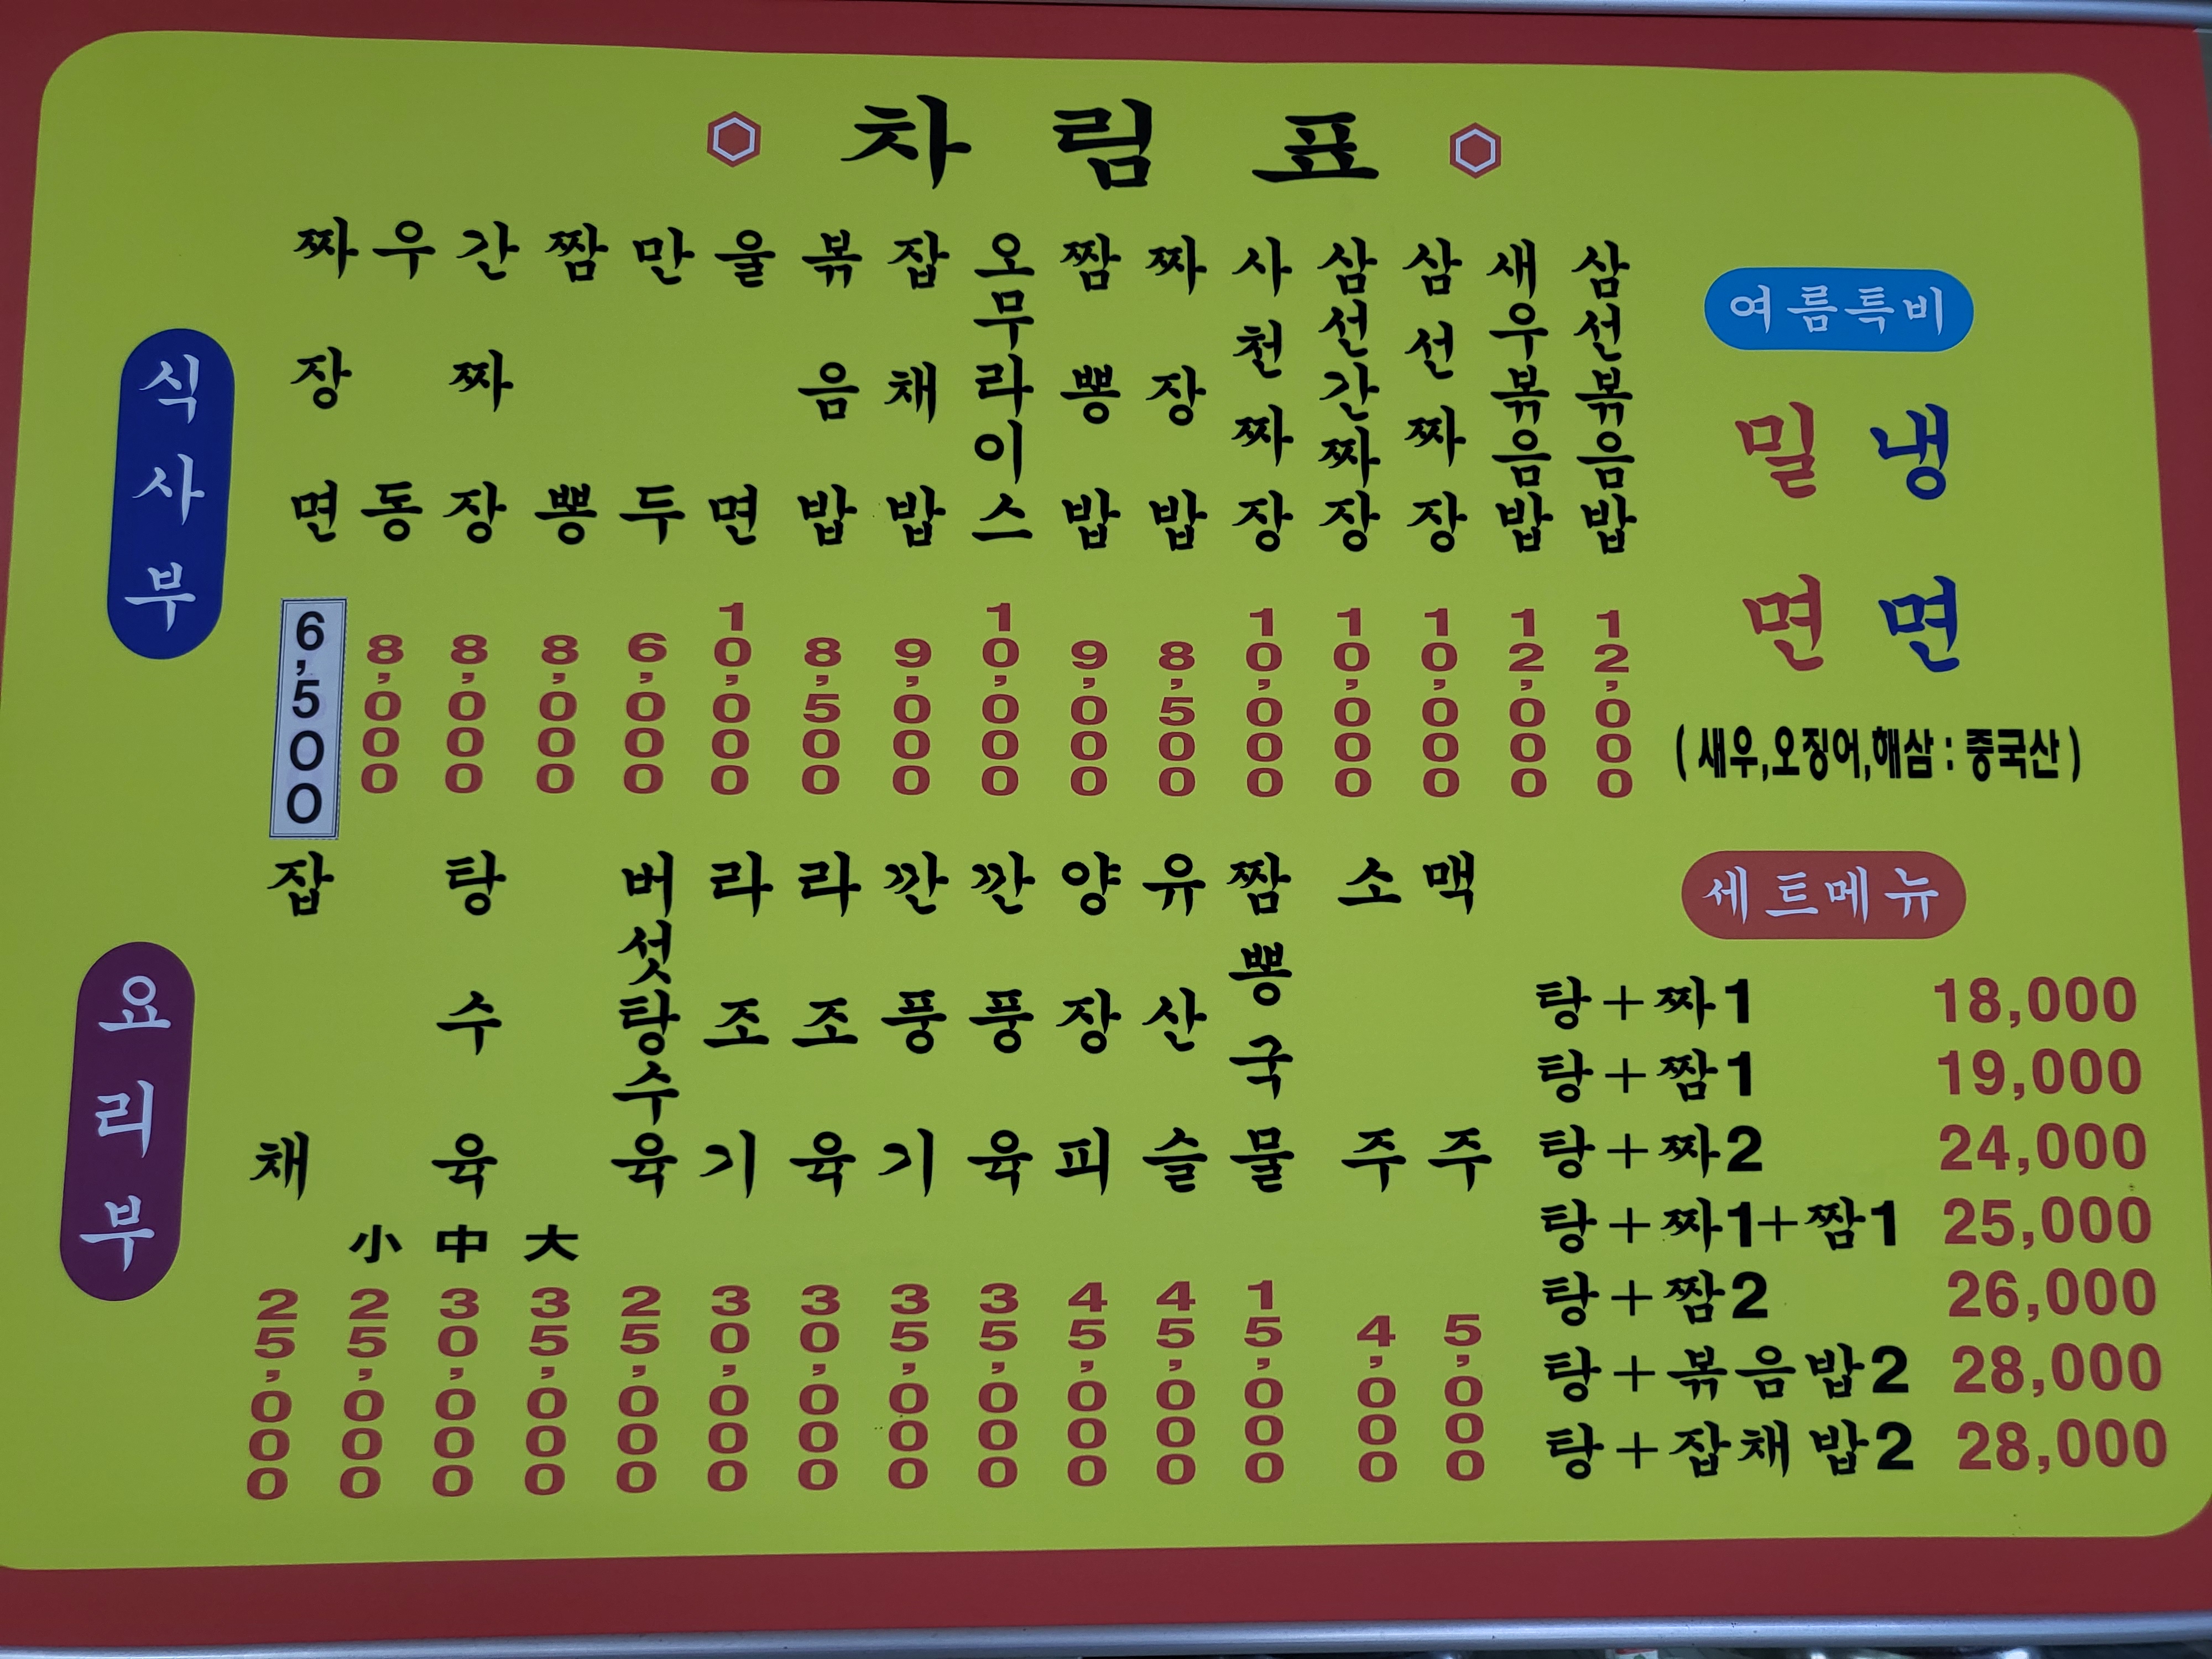 차림표
식사부
짜장면 6,500
우동 8,000
간짜장 8,000
짬뽕 8,000
만두 6,000
울면 10,000
볶음밥 8,500
잡채밥 9,000
오무라이스 10,000
짬뽕밥 9,000
짜장밥 8,500
사천짜장 10,000
삼선간짜장 10,000
삼선짜장 10,000
새우볶음밥 12,000
삼선볶음밥 12,000
여름특비
밀면
냉면
(새우,오징어,해삼:중국산)
요리부
잡채 25,000
탕수육
小 25,000
中 30,000
大 35,000
버섯탕수육 25,000
라조기 30,000
라조육 30,000
깐풍기 35,000
깐풍육 35,000
양장피 45,000
유산슬 45,000
짬뽕국물 15,000
소주 4,000
맥주 5,000
세트메뉴
탕+짜1 18,000
탕+짬1 19,000
탕+짜2 24,000
탕+짜1+짬1 25,000
탕+짬2 26,000
탕+볶음밥2 28,000
탕+잡채밥2 28,000